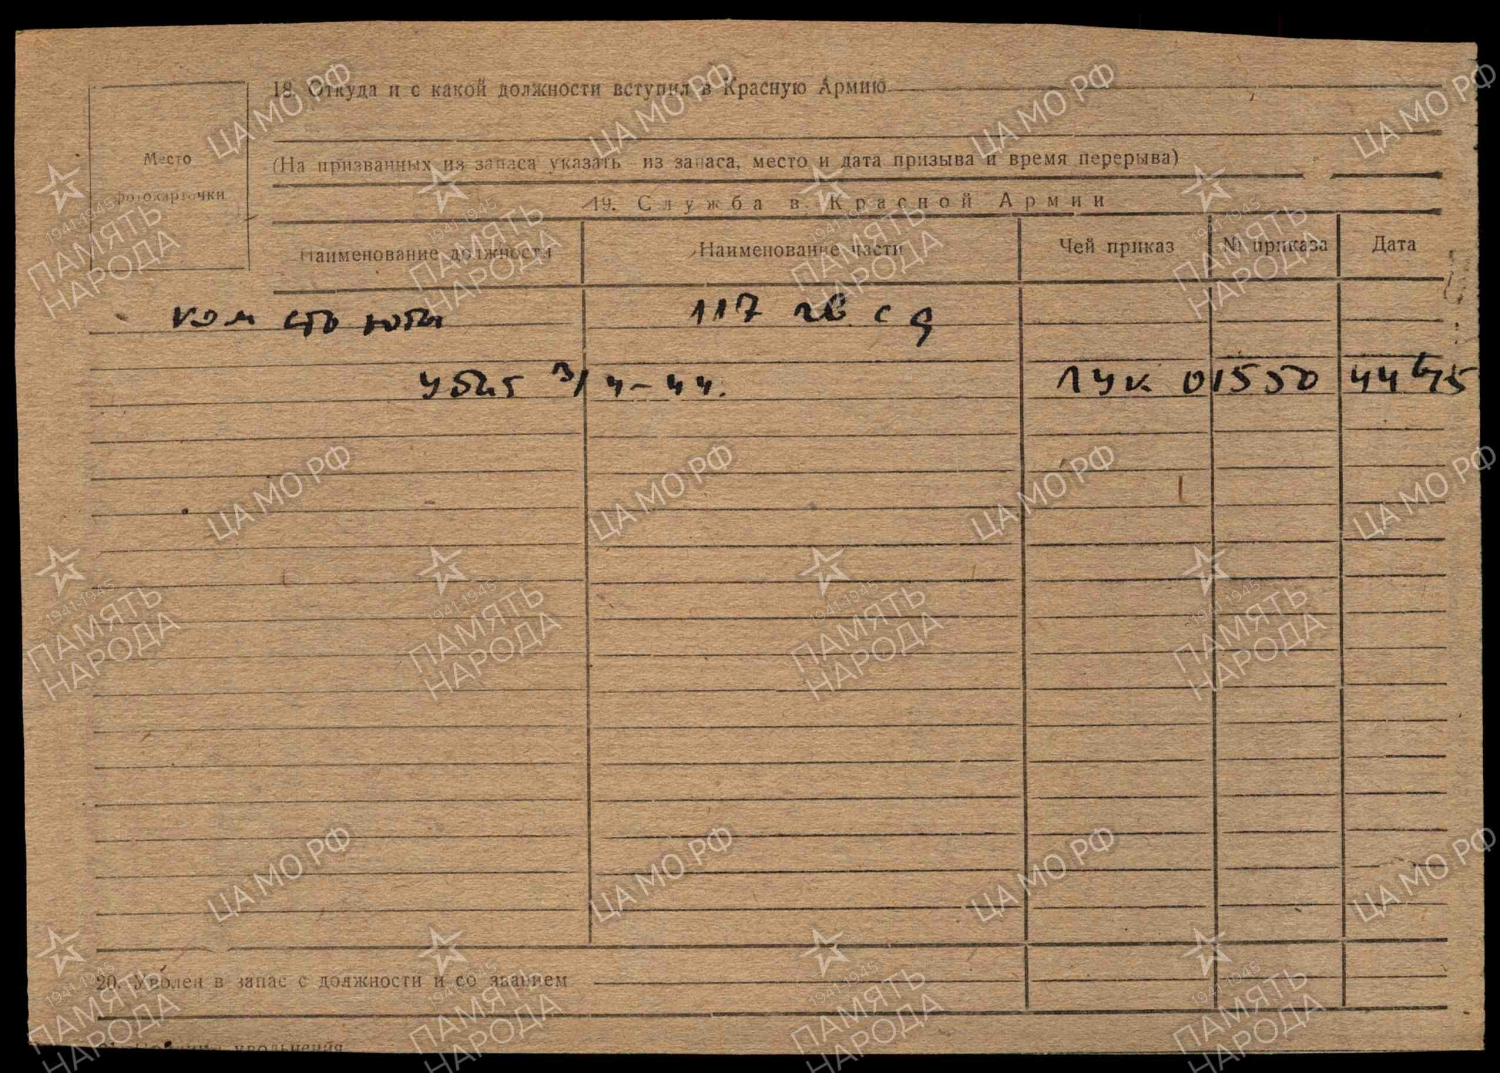 18. Откуда и с какой должности вступил в Красную Армию
Место
фотокарточки
(На призванных из запаса указать из запаса, место и дата призыва и время перерыва)
19. Служба в Красной Армии
Наименование должности Наименование части Чей приказ № приказа Дата
117 гв с д
убит 3/4-44. ГУК 01550
20. Уволен в запас с должности и со званием
увольнения
ЦА МО РФ
1941-1945
ПАМЯТЬ
НАРОДА